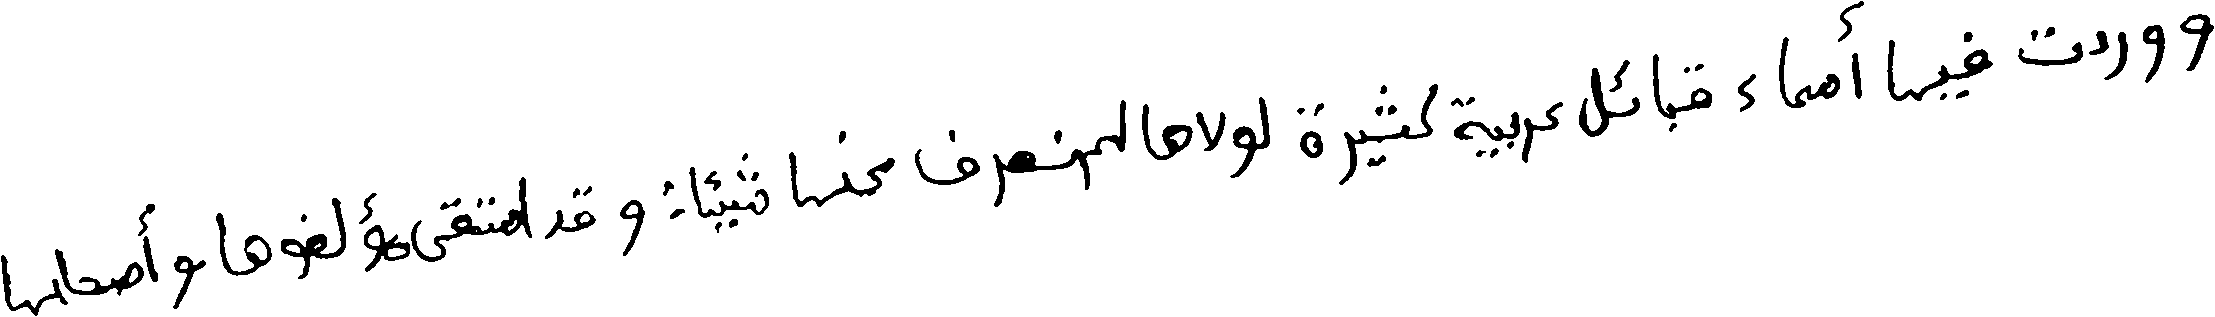 ووردت فيها أسماء قبائل عربية كثيرة لولاها لم نعرف عنها شيئا، وقد استقى مؤلفوها وأصحابها